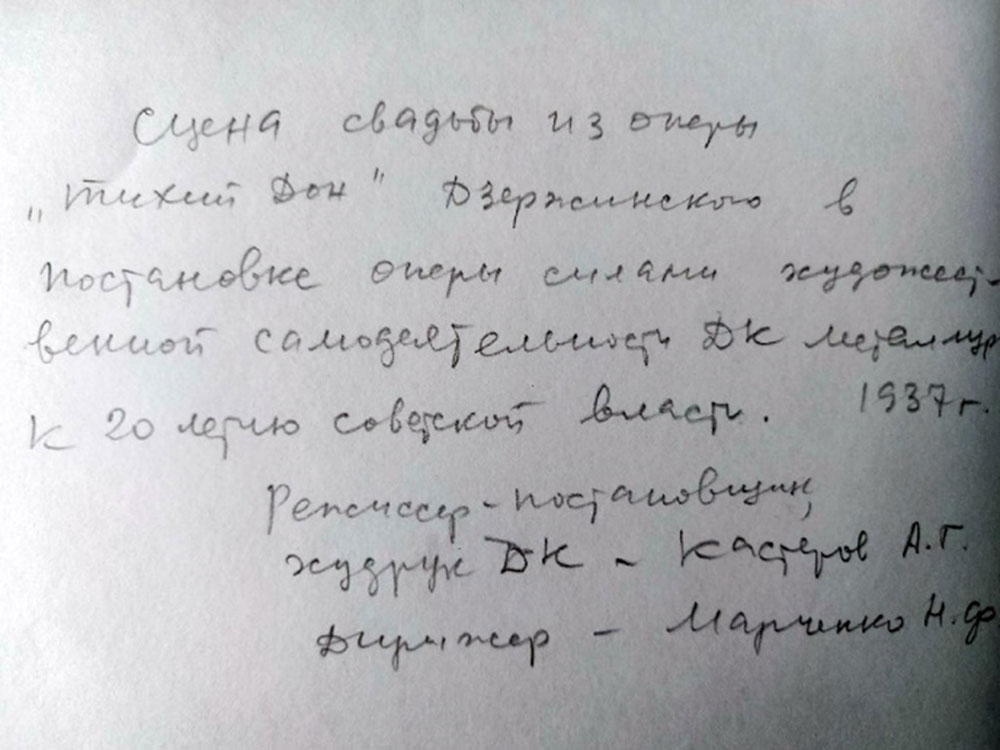 Сцена свадьбы из оперы
„Тихий Дон" Дзержинского в
постановке оперы силами художест-
венной самодеятельности ДК металлур
к 20 летию советской власти. 1937 г.
Режиссер-постановщик,
худрук ДК – Кастеров А.Г.
Дирижер – Марченко Н.Ф